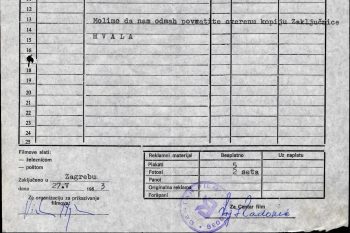 14
15
16
17
18
19
20
21
22
23
24
25
Molimo da nam odmah povratite overenu kopiju Zaključnice
H V A L A
Filmove slati:
— železnicom
— poštom
Zaključeno u Zagrebu
dana 27.V 198 3
Za organizaciju za prikazivanje
filmova:
Reklamni materijal Besplatno Uz naplatu
Plakati 5
Fotosi 2 seta
Panoi
Originalna reklama
Foršpani
Za Centar film